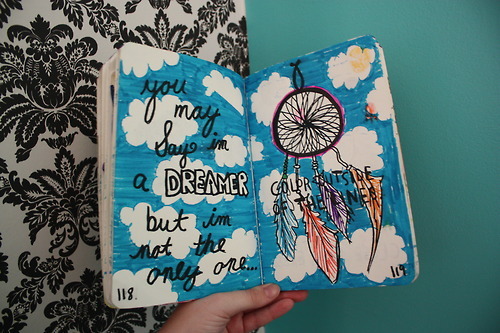 you
may
Say im
a DREAMER
but im
not the
only one...
118.
COLOR OUTSIDE
OF THE LINES
119.